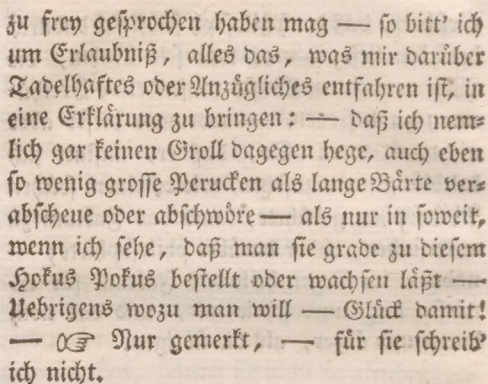 zu frey gesprochen haben mag — so bitt' ich
um Erlaubniß, alles das, was mir darüber
Tadelhaftes oder Anzügliches entfahren ist, in
eine Erklärung zu bringen: — daß ich nem-
lich gar keinen Groll dagegen hege, auch eben
so wenig grosse Perucken als lange Bärte ver-
abscheue oder abschwöre — als nur in soweit,
wenn ich sehe, daß man sie grade zu diesem
Hokus Pokus bestellt oder wachsen läßt —
Uebrigens wozu man will — Glück damit!
— ☞ Nur gemerkt, — für sie schreib'
ich nicht.